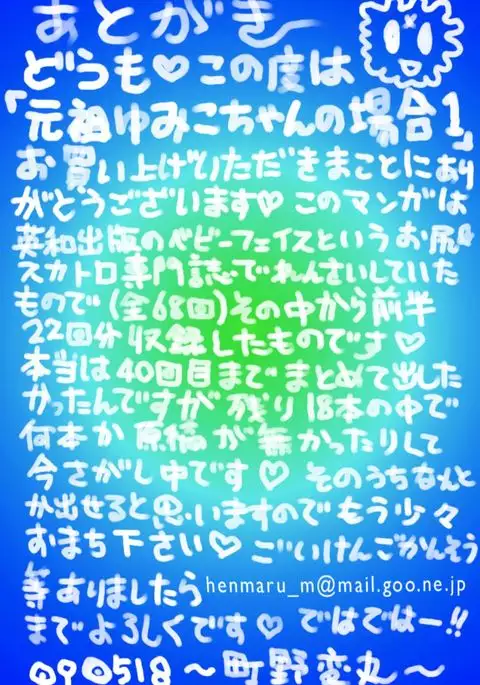 あとがき
どうも♡この度は
「元祖ゆみこちゃんの場合1」
お買い上げいただきまことにあり
がとうございます♡このマンガは
英和出版のベビーフェイスというお尻&
スカトロ専門誌でれんさいしていた
もので(全68回)その中から前半
22回分収録したものです♡
本当は40回目までまとめて出した
かったんですが残り18本の中で
何本か原稿が無かったりして
今さがし中です♡そのうちなんと
か出せると思いますのでもう少々
おまち下さい♡ごいけんごかんそう
等ありましたらhenmaru_m@mail.goo.ne.jp
までよろしくです♡ではではー!!
090518〜町野変丸〜